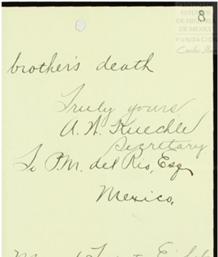 8
brother's death
Truly yours
A. N. Kuechle
Secretary
To P.M. del Rio, Esq
Mexico,